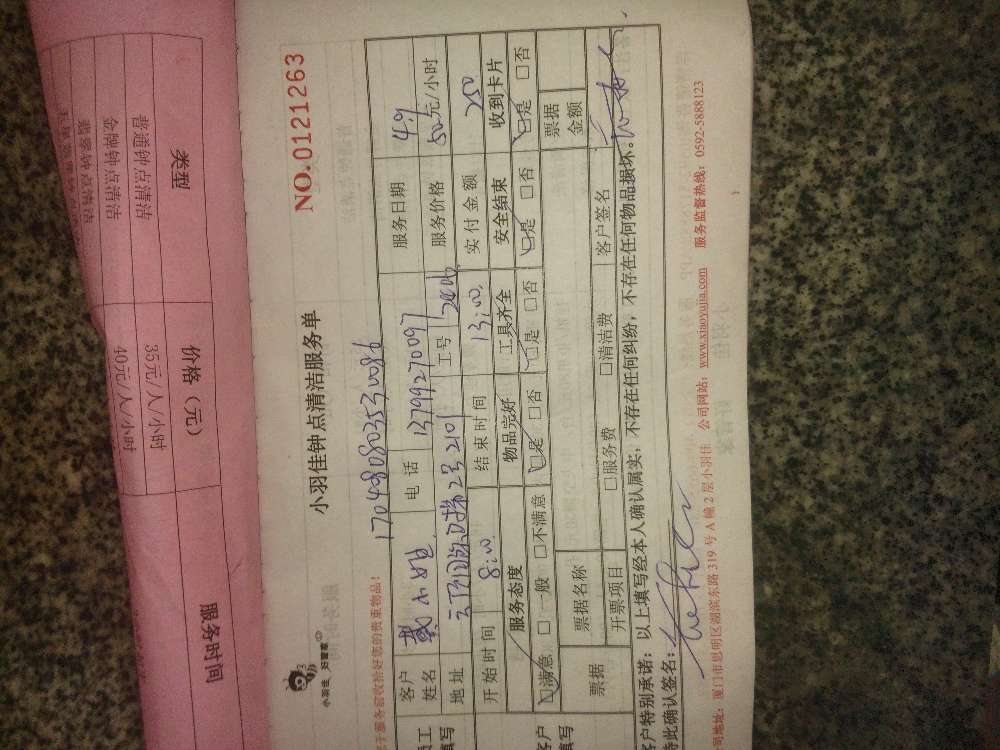 小羽佳 好管家
小羽佳钟点清洁服务单
NO.0121263
于服务前收拾好您的贵重物品!
170480803530086
客户姓名 戴小姐 电话 13799270097 服务日期 4.9
地址 2号2101 工号 服务价格 50元/小时
开始时间 8:00 结束时间 13:00 实付金额 250
服务态度 物品完好 工具齐全 安全结束 收到卡片
☑满意 □一般 □不满意 ☑是 □否 ☑是 □否 ☑是 □否 ☑是 □否
票据 票据名称 票据金额
开票项目 □服务费 □清洁费 客户签名
客户特别承诺:以上填写经本人确认属实,不存在任何纠纷,不存在任何物品损坏。
特此确认签名:
公司地址:厦门市思明区湖滨东路319号A幢2层小羽佳 公司网站:www.xiaoyujia.com 服务监督热线:0592-5888123
类型 价格(元) 服务时间
普通钟点清洁 35元/人/小时
金牌钟点清洁 40元/人/小时